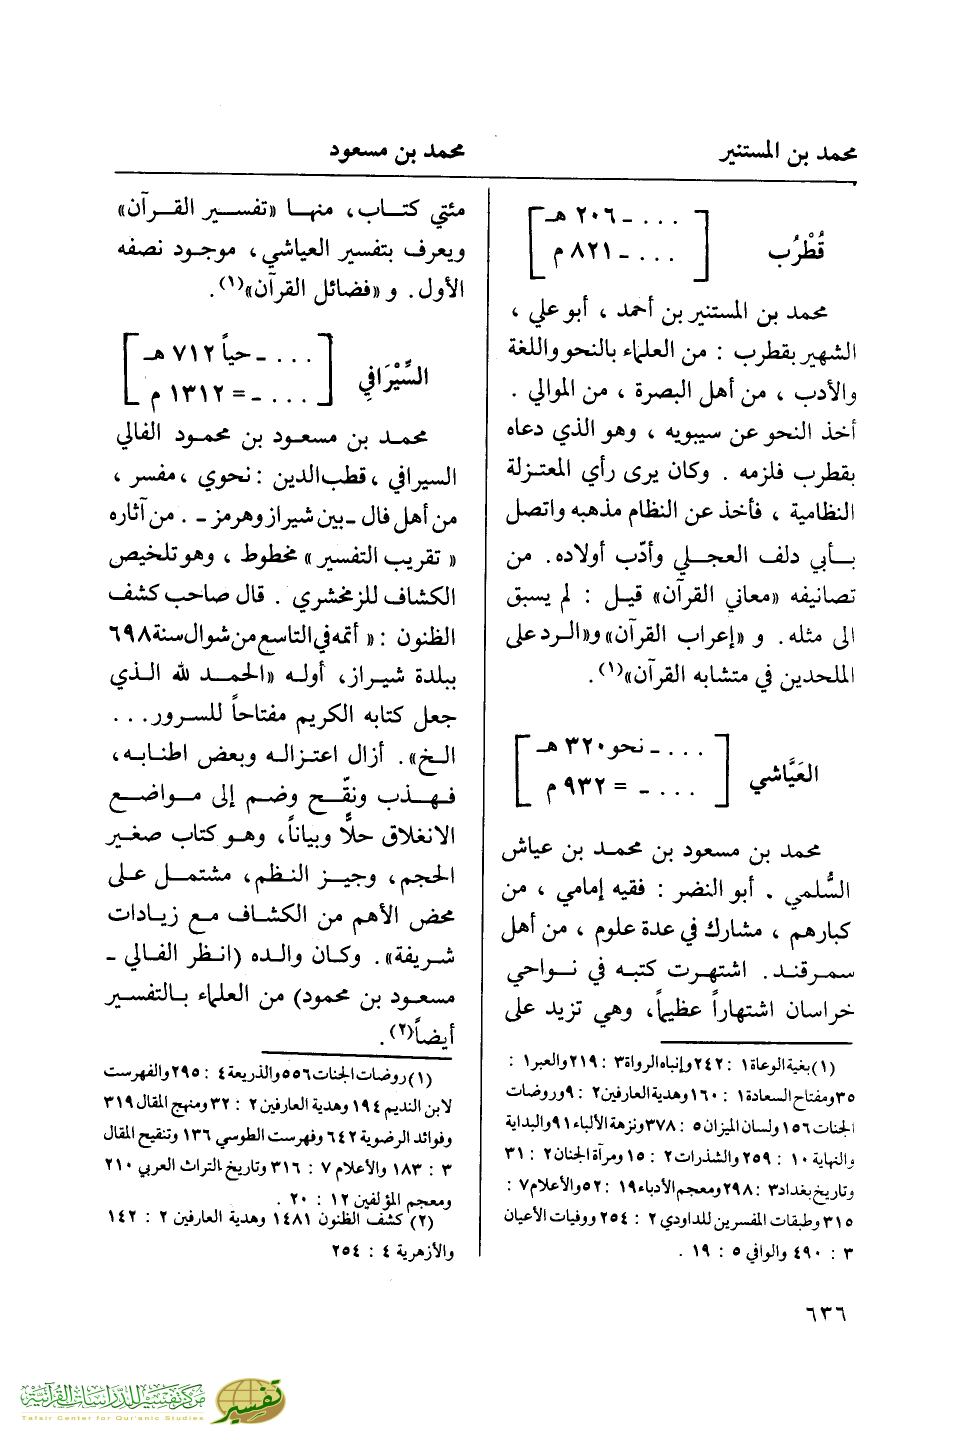 محمد بن المستنير
محمد بن مسعود
قُطْرُب
[ . . . - ٢٠٦ هـ
. . . - ٨٢١ م ]
محمد بن المستنير بن أحمد ، أبو علي ،
الشهير بقطرب : من العلماء بالنحو واللغة
والأدب ، من أهل البصرة ، من الموالي .
أخذ النحو عن سيبويه ، وهو الذي دعاه
بقطرب فلزمه . وكان يرى رأي المعتزلة
النظامية ، فأخذ عن النظام مذهبه واتصل
بأبي دلف العجلي وأدّب أولاده. من
تصانيفه «معاني القرآن» قيل : لم يسبق
الى مثله. و «إعراب القرآن» و«الرد على
الملحدين في متشابه القرآن»(١).
العَيَّاشي
[ . . . - نحو ٣٢٠ هـ
. . . - = ٩٣٢ م ]
محمد بن مسعود بن محمد بن عياش
السُّلمي . أبو النضر : فقيه إمامي ، من
كبارهم ، مشارك في عدة علوم ، من أهل
سمرقند. اشتهرت كتبه في نواحي
خراسان اشتهاراً عظيماً، وهي تزيد على
(١) بغية الوعاة ١ : ٢٤٢ وإنباه الرواة ٣ : ٢١٩ والعبر ١ :
٣٥ ومفتاح السعادة ١ : ١٦٠ وهدية العارفين ٢ : ٩ وروضات
الجنات ١٥٦ ولسان الميزان ٥ : ٣٧٨ ونزهة الألباء ٩١ والبداية
والنهاية ١٠ : ٢٥٩ والشذرات ٢ : ١٥ ومرآة الجنان ٢ : ٣١
وتاريخ بغداد ٣ : ٢٩٨ ومعجم الأدباء ١٩ : ٥٢ والأعلام ٧ :
٣١٥ وطبقات المفسرين للداودي ٢ : ٢٥٤ ووفيات الأعيان
٣ : ٤٩٠ والوافي ٥ : ١٩ .
مئتي كتاب، منها «تفسير القرآن»
ويعرف بتفسير العياشي، موجود نصفه
الأول. و «فضائل القرآن»(١).
السِّيْرَافي
[ . . . - حياً ٧١٢ هـ
. . . - = ١٣١٢ م ]
محمد بن مسعود بن محمود الفالي
السيرافي ، قطب الدين : نحوي ، مفسر ،
من أهل فال - بين شيراز وهرمز - . من آثاره
« تقريب التفسير » مخطوط ، وهو تلخيص
الكشاف للزمخشري . قال صاحب كشف
الظنون : « أتمه في التاسع من شوال سنة ٦٩٨
ببلدة شيراز، أوله «الحمد لله الذي
جعل كتابه الكريم مفتاحاً للسرور . . .
الخ». أزال اعتزاله وبعض اطنابه،
فهذب ونقّح وضم إلى مواضع
الانغلاق حلاًّ وبياناً، وهو كتاب صغير
الحجم، وجيز النظم، مشتمل على
محض الأهم من الكشاف مع زيادات
شريفة». وكان والده (انظر الفالي -
مسعود بن محمود) من العلماء بالتفسير
أيضاً(٢).
(١) روضات الجنات ٥٥٦ والذريعة ٤ : ٢٩٥ والفهرست
لابن النديم ١٩٤ وهدية العارفين ٢ : ٣٢ ومنهج المقال ٣١٩
وفوائد الرضوية ٦٤٢ وفهرست الطوسي ١٣٦ وتنقيح المقال
٣ : ١٨٣ والأعلام ٧ : ٣١٦ وتاريخ التراث العربي ٢١٠
ومعجم المؤلفين ١٢ : ٢٠ .
(٢) كشف الظنون ١٤٨١ وهدية العارفين ٢ : ١٤٢
والأزهرية ٤ : ٢٥٤
٦٣٦
مركز تفسير للدراسات القرآنية
Tafsir Center for Qur'anic Studies
تفسير